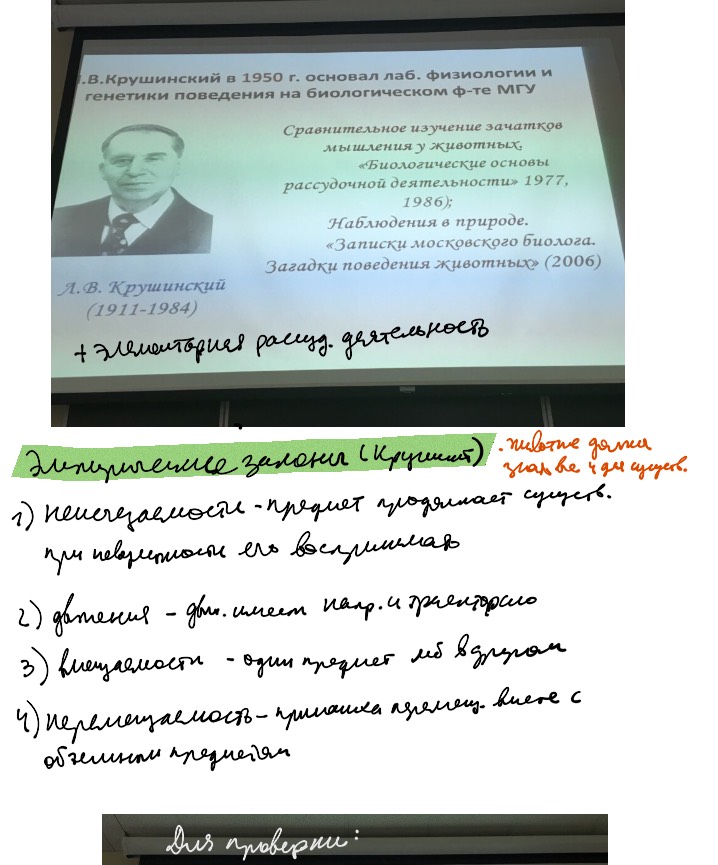 .В.Крушинский в 1950 г. основал лаб. физиологии и
генетики поведения на биологическом ф-те МГУ
Сравнительное изучение зачатков
мышления у животных.
«Биологические основы
рассудочной деятельности» 1977,
1986);
Наблюдения в природе.
«Записки московского биолога.
Загадки поведения животных» (2006)
Л.В. Крушинский
(1911-1984)
+ Элементарная рассуд. деятельность
Эмпирические законы (Крушинск)
· животные должны
знать все 4 для существ.
1) неисчезаемости - предмет продолжает существ.
при невозможности его воспринимать
2) движения - движ. имеет напр. и траекторию
3) вмещаемости - один предмет мб в другом
4) перемещаемость - приманка перемещ. вместе с
объемным предметам
Для проверки: